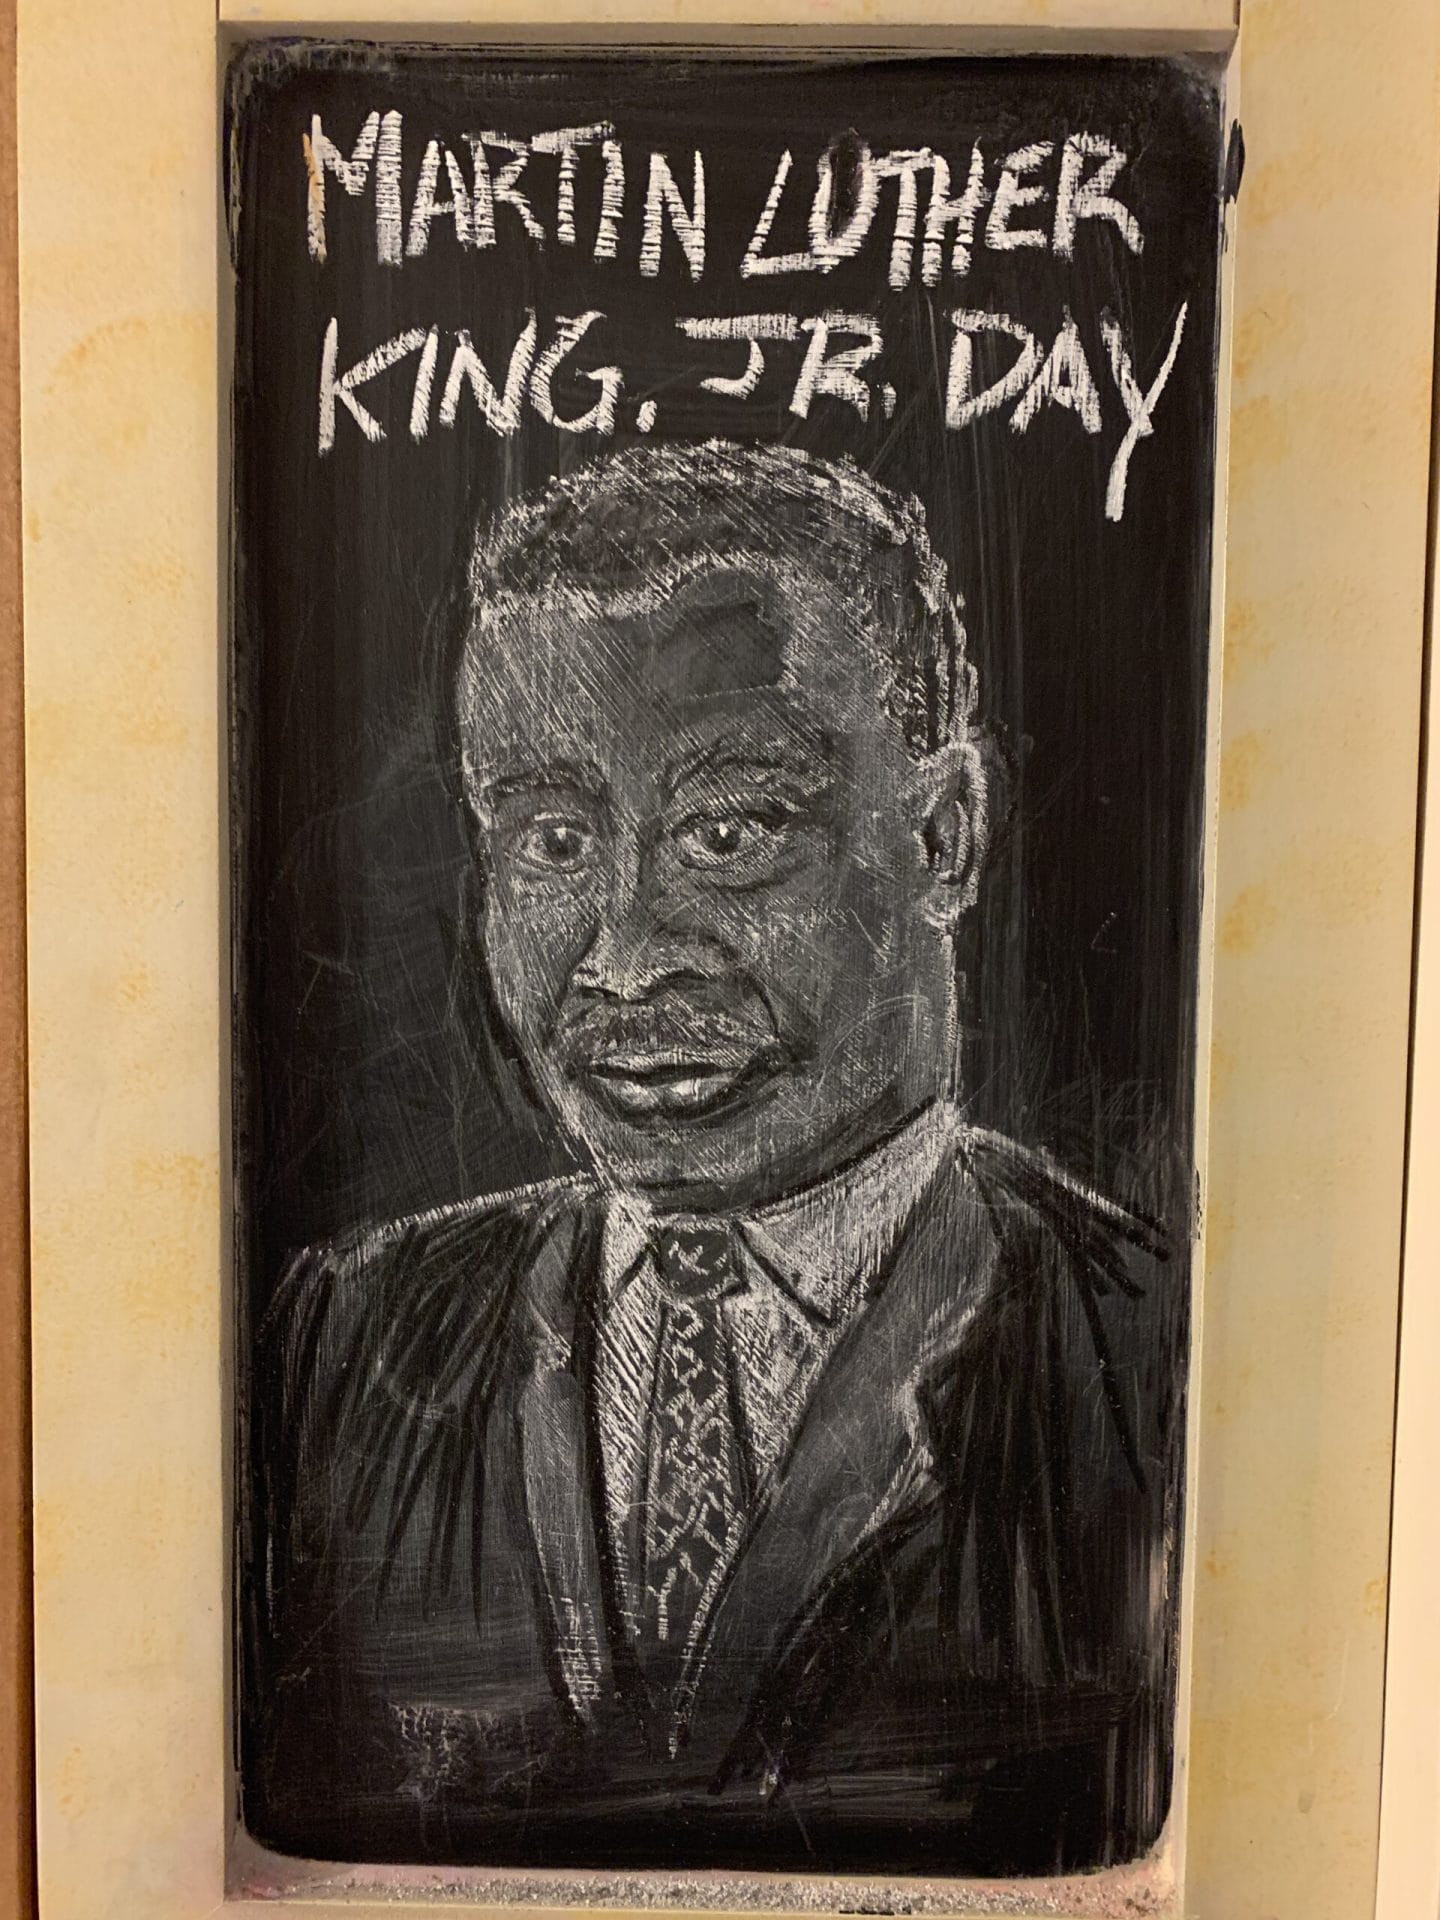 MARTIN LUTHER
KING, JR. DAY